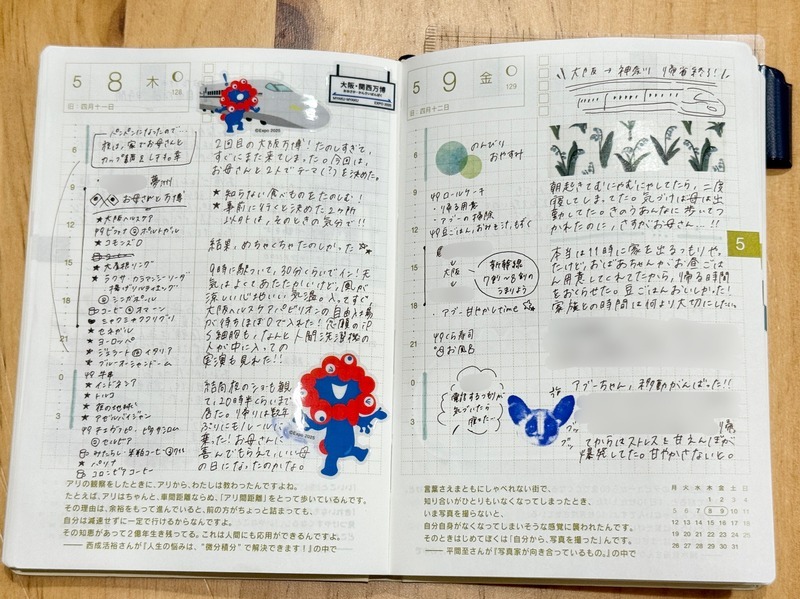 5
8
木
旧:四月十一日
128
6
9
12
15
18
21
0
3
夢洲
お母さんと万博
★ 大阪ヘルスケア
★ コモンズD
★ 大屋根リング
@シンガポール
コーヒー@オマーン
★ セネガル
★ ヨーロッパ
ジェラート@イタリア
★ ブルーオーシャンドーム
★ インドネシア
★ トルコ
★ 夜の地球
★ アゼルバイジャン
@セルビア
コロンビアコーヒー
大阪・関西万博
EXPO 2025
©Expo 2025
2回目の大阪万博!たのしすぎて、
すぐにまた来てしまった。今回は、
お母さんと2人でテーマ(?)を決めた。
★ 知らない食べものをたのしむ!
★ 事前に行くと決めた2ヶ所
以外は、そのときの気分で!!
結果、めちゃくちゃたのしかった
9時に並んで、30分くらいでイン!天
気はよくてあたたかいけど、風が
涼しい心地いい気温。入ってすぐ、
大阪ヘルスケアパビリオンの自由入場
が待ちほぼ0で入れた!
人が中に入っての
実演も見れた!!
結局夜のショーも観
て、20時半くらいまで
居た。帰りは数年
ぶりに
乗った!お母さんに
喜んでもらえて、いい母
の日になったのかな。
©Expo 2025
アリの観察をしたときに、アリから、わたしは教わったんですよね。
たとえば、アリはちゃんと、車間距離ならぬ、「アリ間距離」をとって歩いているんです。
その理由は、余裕をもって進んでいると、前の方がちょっと詰まっても、
自分は減速せずに一定で行けるからなんですよ。
その知恵があって2億年生き残ってる。これは人間にも応用ができるんですよ。
── 西成活裕さんが『人生の悩みは、“微分積分”で解決できます!』の中で
5
9
金
旧:四月十二日
129
6
9
12
15
18
21
0
3
大阪→神奈川 帰省終了!
のんびり
おやすみ
49 ロールケーキ
・帰る用意
・アブーの掃除
49 豆ごはん、おみそ汁、もずく
大阪
新幹線
・アブー甘やかしtime
49 くら寿司
@お風呂
電話するつもりが
気づいたら
寝てた!
朝起きてむにゃむにゃしてたら、二度
寝してしまってた。気づけば母は出
勤してた。きのうあんなに歩いてつ
かれたのに、さすがお母さん…!!
本当は11時に家を出るつもりや
ったけど、おばあちゃんがお昼ごは
ん用意してくれてたから、帰る時間
をおくらせた。豆ごはんおいしかった!
家族との時間は何より大切にしたい。
アブーちゃん、移動がんばった!!
帰っ
てからはストレスと甘えんぼが
爆発してた。甘やかさないと。
5
言葉さえまともにしゃべれない街で、
知り合いがひとりもいなくなってしまったとき、
いま写真を撮らないと、
自分自身がなくなってしまいそうな感覚に襲われたんです。
そのときはじめてぼくは「自分から、写真を撮った」んです。
── 平間至さんが『写真家が向き合っているもの。』の中で
月 火 水 木 金 土 日
1 2 3 4
5 6 7 8 9 10 11
12 13 14 15 16 17 18
19 20 21 22 23 24 25
26 27 28 29 30 31